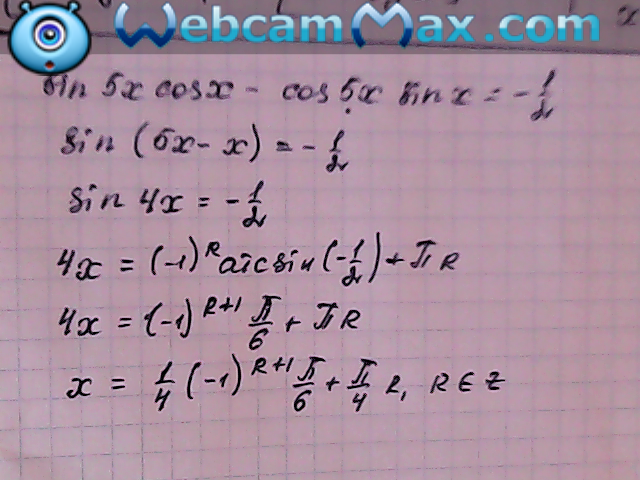 WebcamMax.com
sin 5x cosx - cos 5x sin x = -1/2
sin (5x - x) = -1/2
sin 4x = -1/2
4x = (-1)^k arcsin(-1/2) + πk
4x = (-1)^(k+1) π/6 + πk
x = 1/4 (-1)^(k+1) π/6 + π/4 k, k ∈ Z